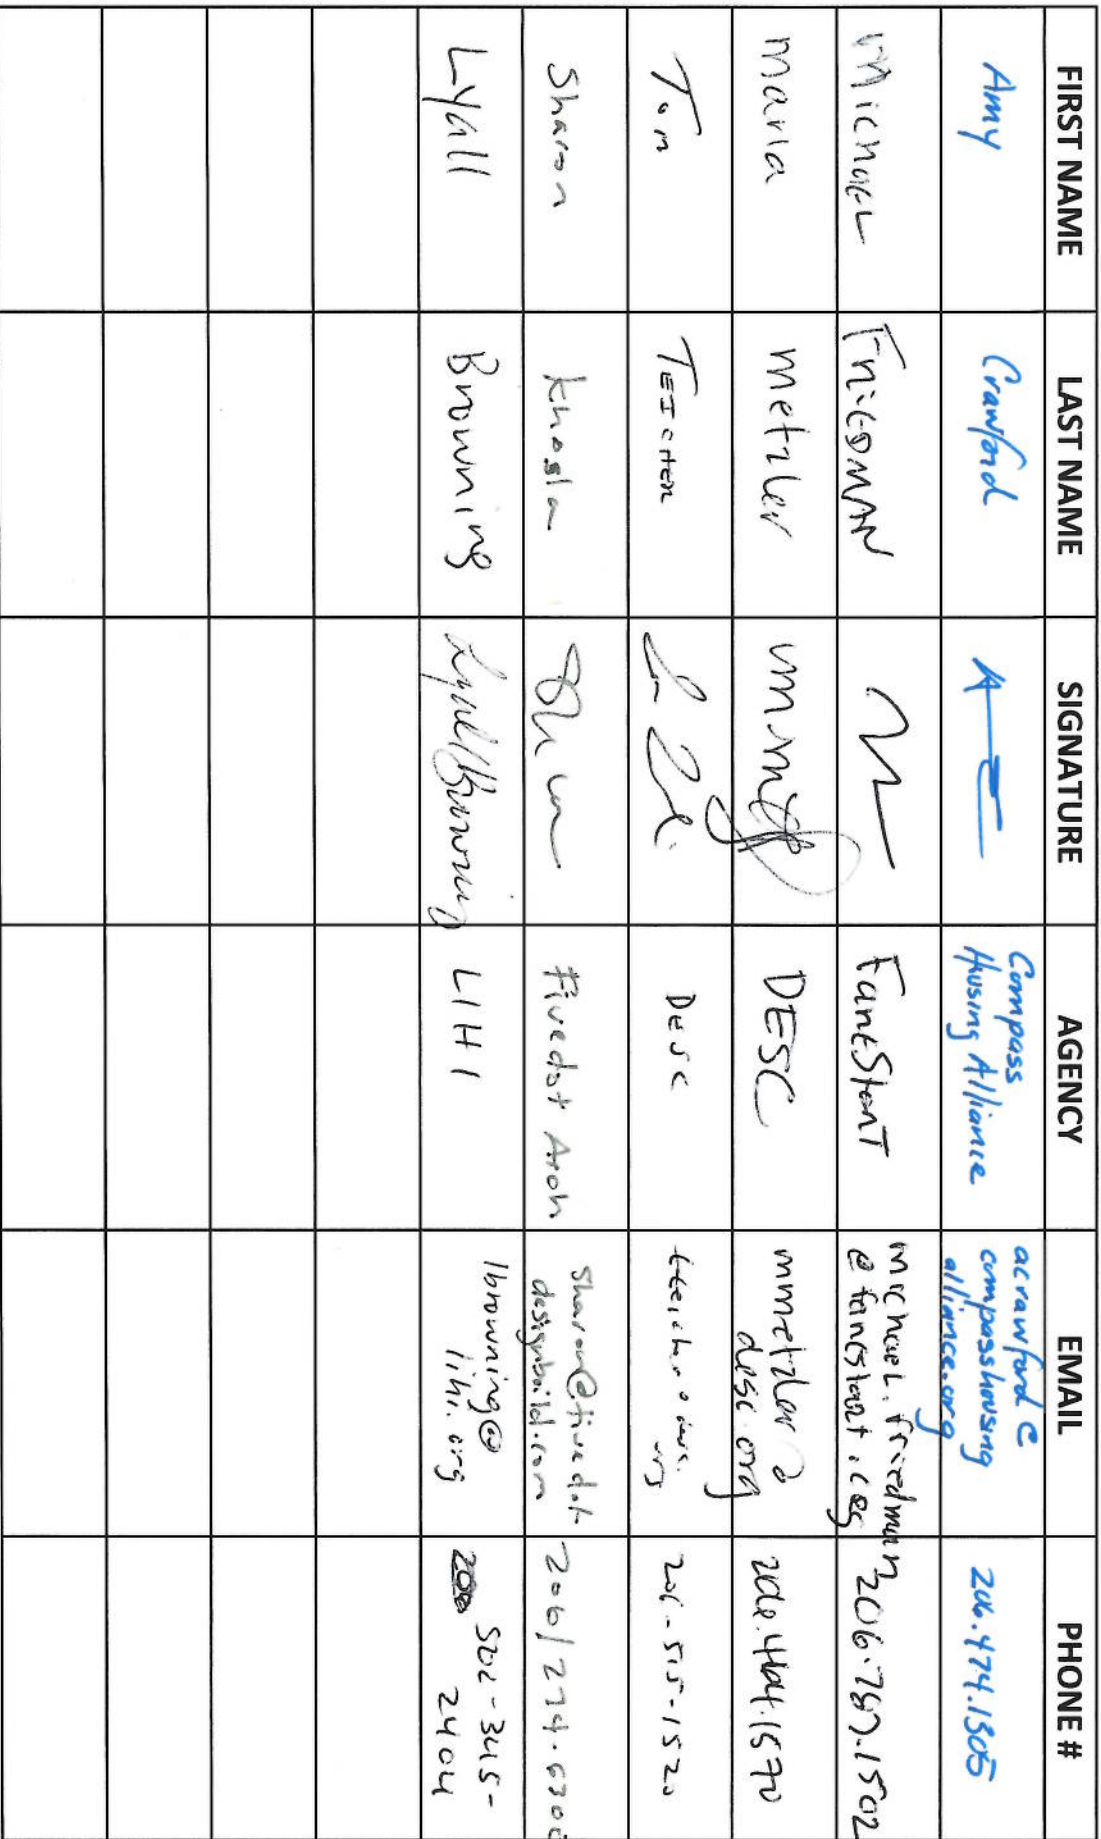 FIRST NAME LAST NAME SIGNATURE AGENCY EMAIL PHONE #
Amy Crawford Compass
Housing Alliance acrawford@
compasshousing
alliance.org 206.474.1305
Michael Friedman FareStart michael.friedman
@farestart.org 206.787.1502
Maria Metzler DESC mmetzler@
desc.org 206.464.1570
Tom TEICHER DESC tteicher@desc.
org 206-515-1520
Sharon Khosla Fivedot Arch sharon@fivedot
designbuild.com 206/274.630
Lyall Browning Lyall Browning LIHI lbrowning@
lihi.org 502-345-
2404